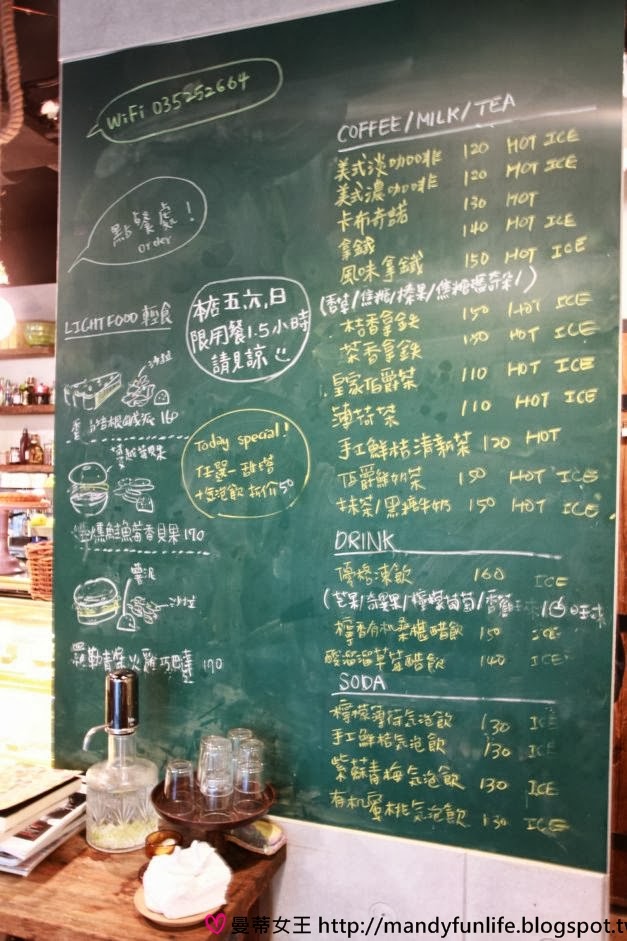 WiFi 035252664
點餐處!
order
LIGHT FOOD 輕食
沙拉
培根鹹派 160
蔓越莓貝果
燻鮭魚茴香貝果 170
栗泥
沙拉
羅勒青醬火雞巧巴達 170
本店五六,日
限用餐1.5小時
請見諒
Today special!
任選一甜塔
+氣泡飲 折价50
COFFEE/MILK/TEA
美式淡咖啡 120 HOT ICE
美式濃咖啡 120 HOT ICE
卡布奇諾 130 HOT
拿鐵 140 HOT ICE
風味拿鐵 150 HOT ICE
(香草/焦糖/榛果/焦糖瑪奇朵/)
桔香拿鉄 150 HOT ICE
茶香拿鉄 150 HOT ICE
皇家伯爵茶 110 HOT ICE
薄荷茶 110 HOT ICE
手工鮮桔清新茶 120 HOT
伯爵鮮奶茶 150 HOT ICE
抹茶/黑糖牛奶 150 HOT ICE
DRINK
優格凍飲 160 ICE
(芒果/奇異果/檸檬葡萄/香蕉
檸香有机桑椹醋飲 150 ICE
酸溜溜草莓醋飲 140 ICE
SODA
檸檬薄荷氣泡飲 130 ICE
手工鮮桔氣泡飲 130 ICE
紫蘇青梅氣泡飲 130 ICE
有机蜜桃氣泡飲 130 ICE
曼蒂女王 http://mandyfunlife.blogspot.tw